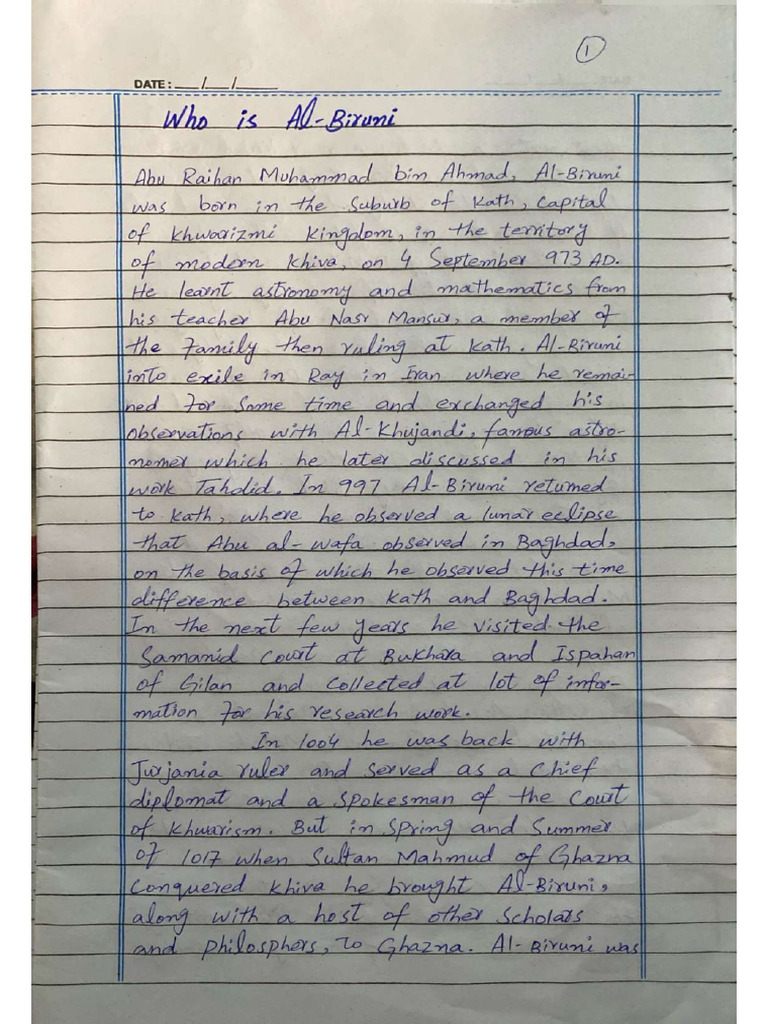 1
DATE: __/__/____
Who is Al-Biruni
Abu Raihan Muhammad bin Ahmad, Al-Biruni
was born in the suburb of Kath, capital
of khwarizmi kingdom, in the territory
of modern Khiva, on 4 September 973 AD.
He learnt astronomy and mathematics from
his teacher Abu Nasr Mansur, a member of
the family then ruling at Kath. Al-Biruni
into exile in Ray in Iran where he remai-
ned for some time and exchanged his
observations with Al-Khujandi, famous astro-
nomer which he later discussed in his
work Tahdid. In 997 Al-Biruni returned
to Kath, where he observed a lunar eclipse
that Abu al-wafa observed in Baghdad,
on the basis of which he observed this time
difference between Kath and Baghdad.
In the next few years he visited the
Samanid Court at Bukhara and Ispahan
of Gilan and collected at lot of infor-
mation for his research work.
In 1004 he was back with
Jurjania ruler and served as a chief
diplomat and a spokesman of the court
of Khwarism. But in spring and summer
of 1017 when Sultan Mahmud of Ghazna
conquered Khiva he brought Al-Biruni,
along with a host of other scholars
and philosphers, to Ghazna. Al-Biruni was